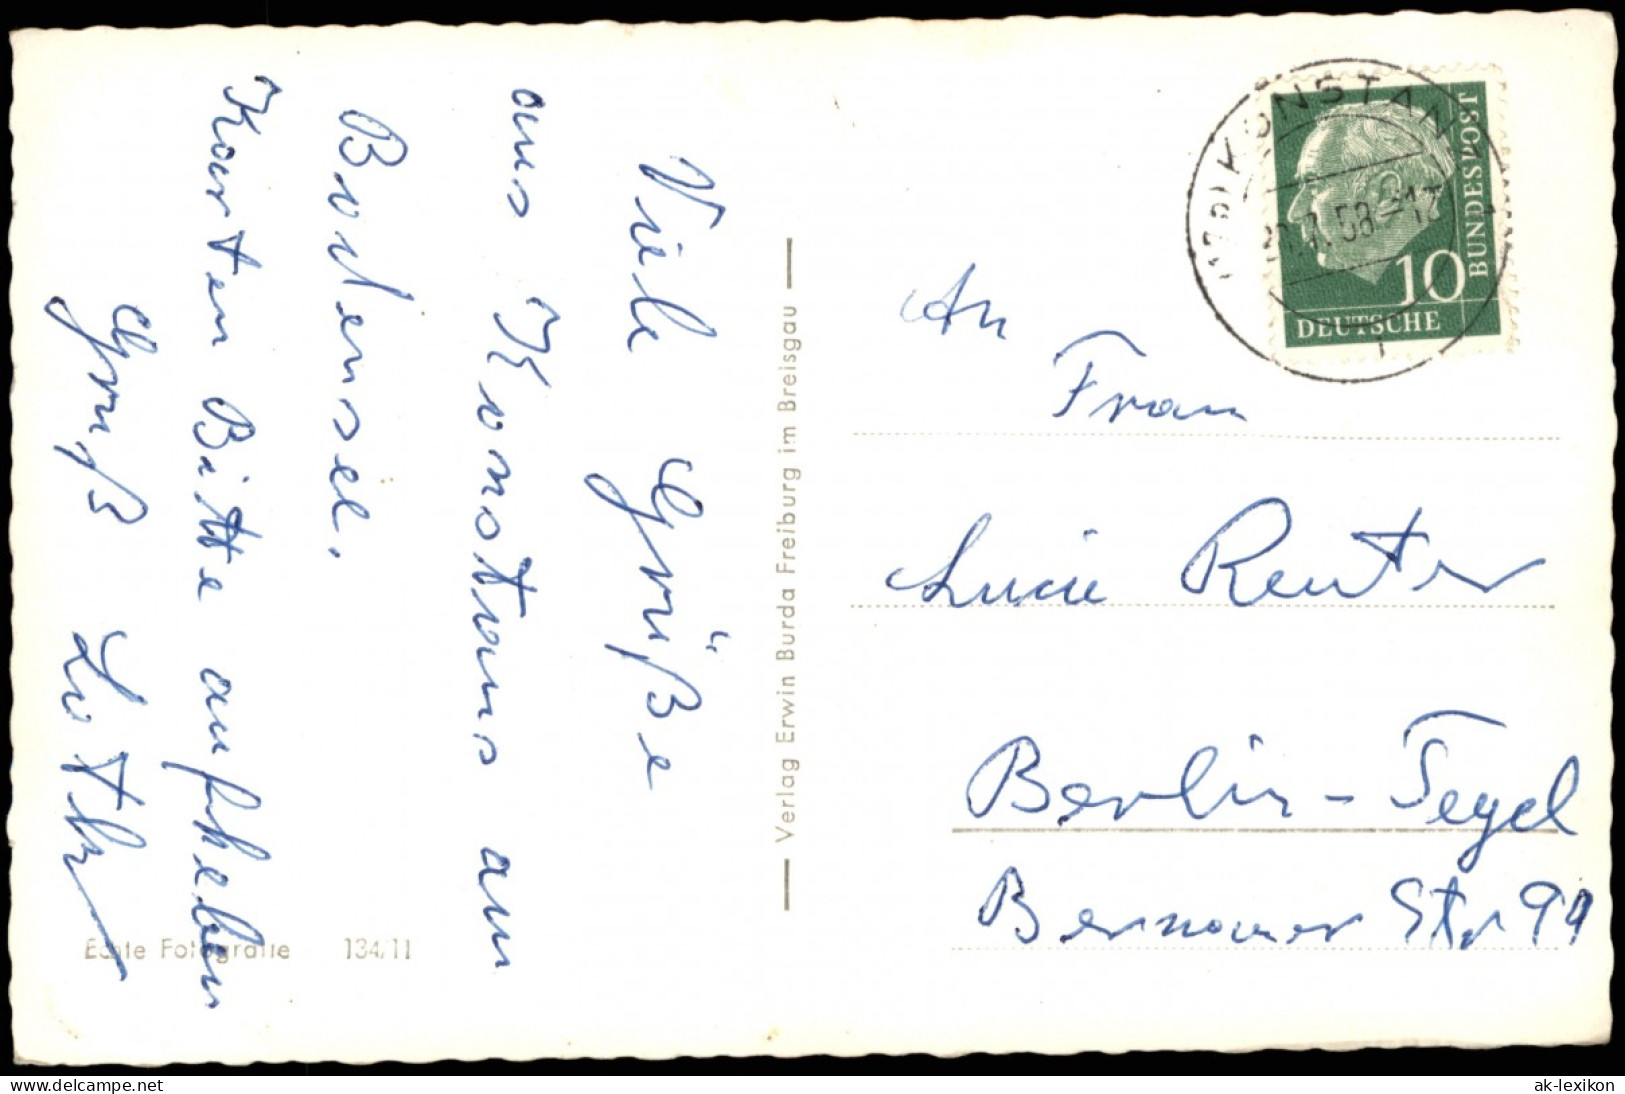 Viele Grüße
aus Konstans am
Bodensee.
Karten Bitte aufheben
Gruß Lothar
Echte Fotografie 134/11
Verlag Erwin Burda Freiburg im Breisgau
KONSTANZ
58
DEUTSCHE
BUNDESPOST
10
An
Frau
Lucie Reuter
Berlin-Tegel
Bernauer Str 99
www.delcampe.net
ak-lexikon